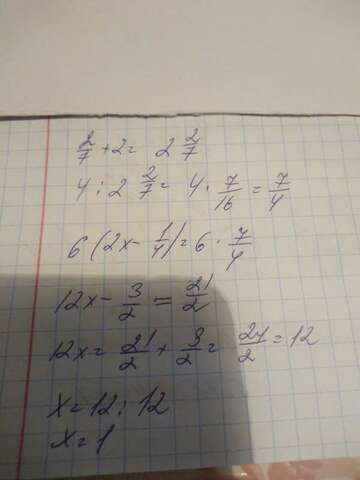 2/7 + 2 = 2 2/7
4 : 2 2/7 = 4 · 7/16 = 7/4
6 (2x - 1/4) = 6 · 7/4
12x - 3/2 = 21/2
12x = 21/2 + 3/2 = 24/2 = 12
x = 12 : 12
x = 1